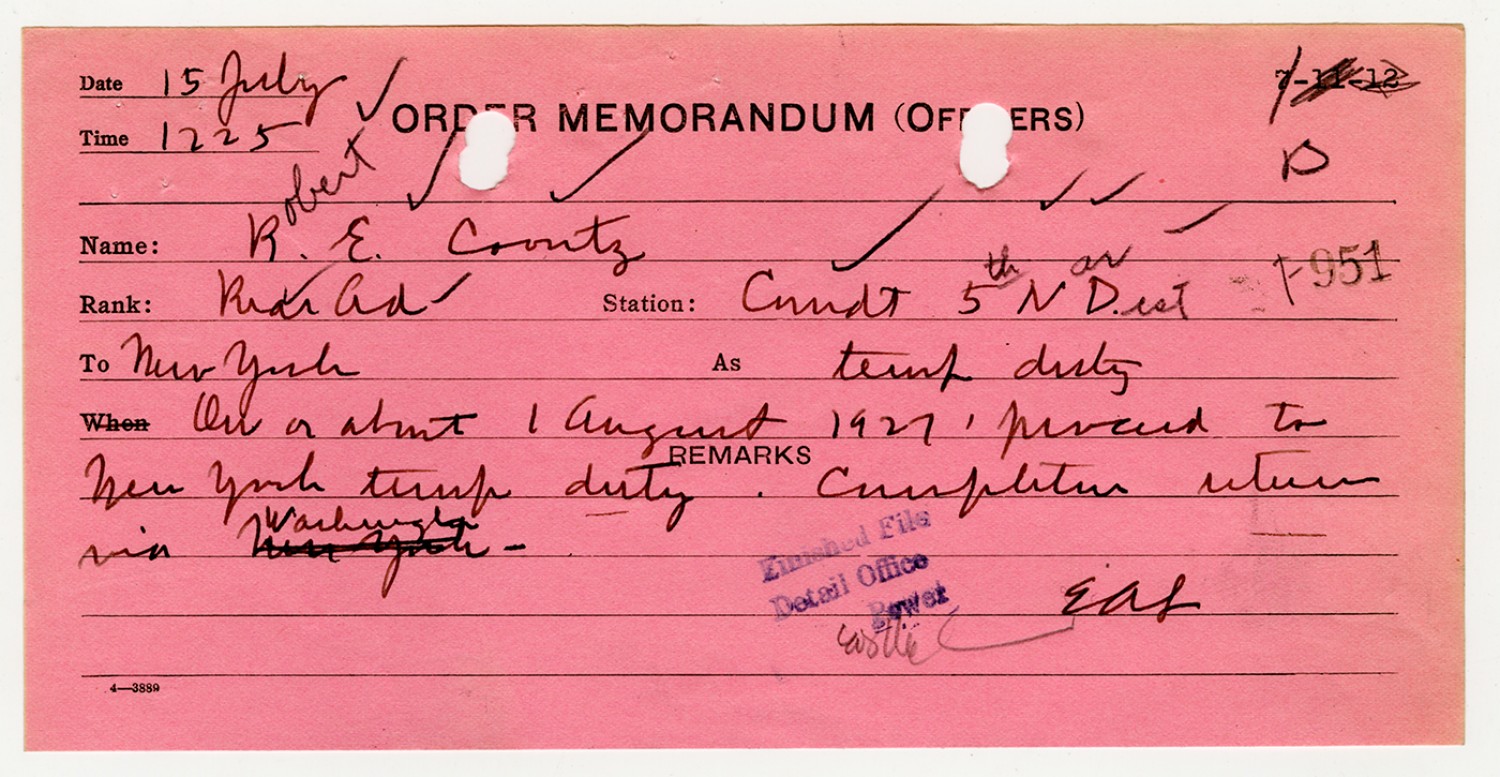 Date 15 July
Time 1225
ORDER MEMORANDUM (OFFICERS)
7-11-12
D
Robert
Name: R. E. Coontz
Rank: Rear Ad Station: Comdt 5th Nav Dist
1-951
To New York As temp duty
When On or about 1 August 1927, proceed to
REMARKS
New York temp duty. Completion return
via New York - Washington
Finished File
Detail Office
EAL
4—3889